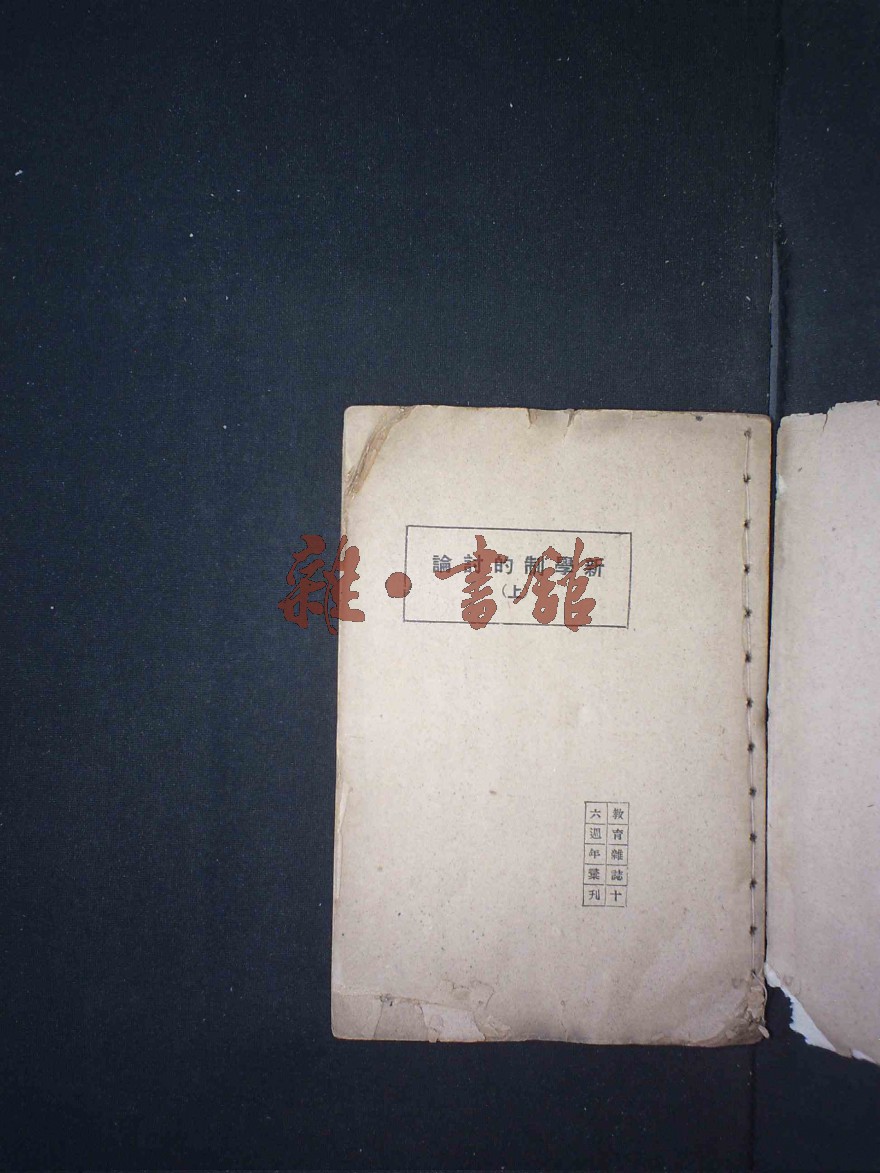 新學制的討論
（上）
雜·書館
教育雜誌十
六週年彙刊